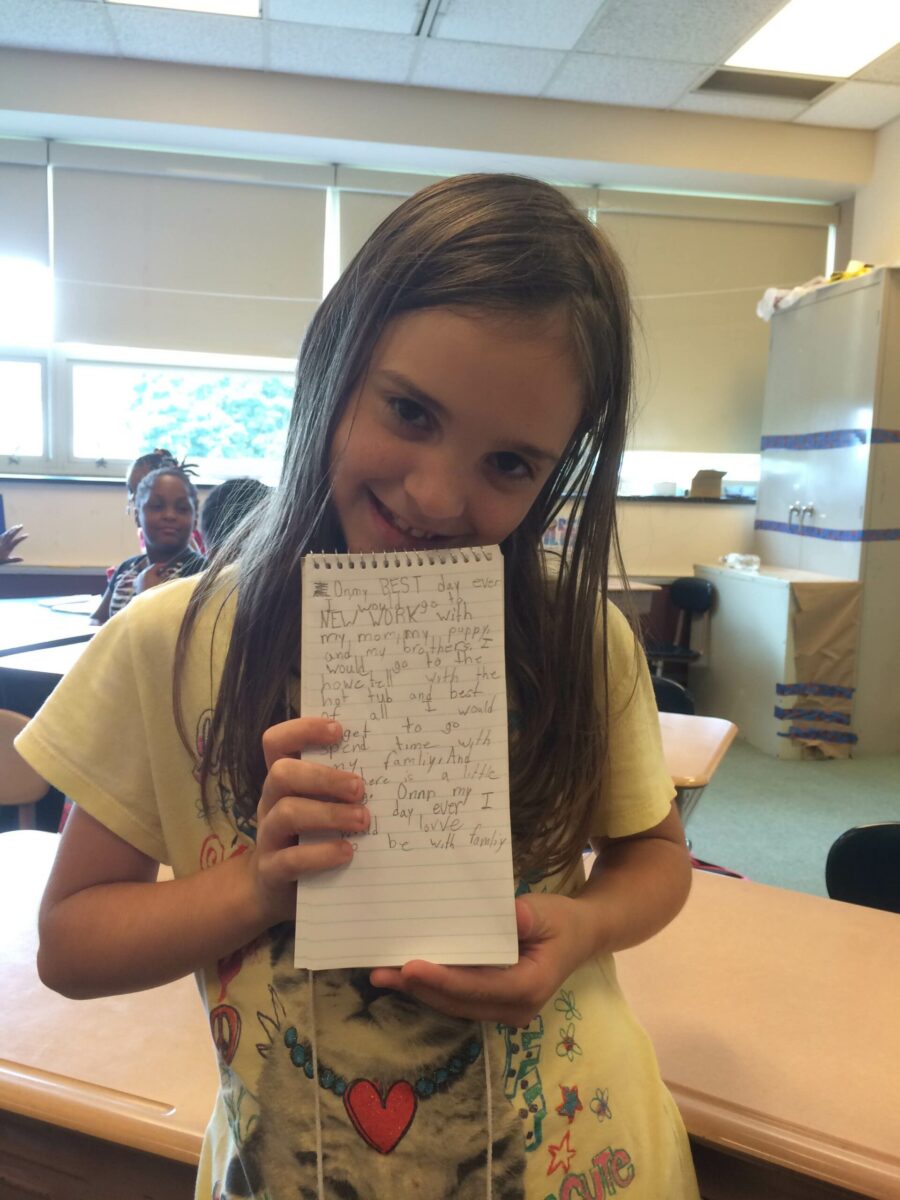 Onmy BEST day ever
I would go to
NEW WORK with
my mom, my puppy,
and my brothers. I
would go to the
howetell with the
hot tub and best
of all I would
get to go
spend time with
my famliy. And
here is a little
Onnp my
day ever I
lovve
be with famliy
CUTE